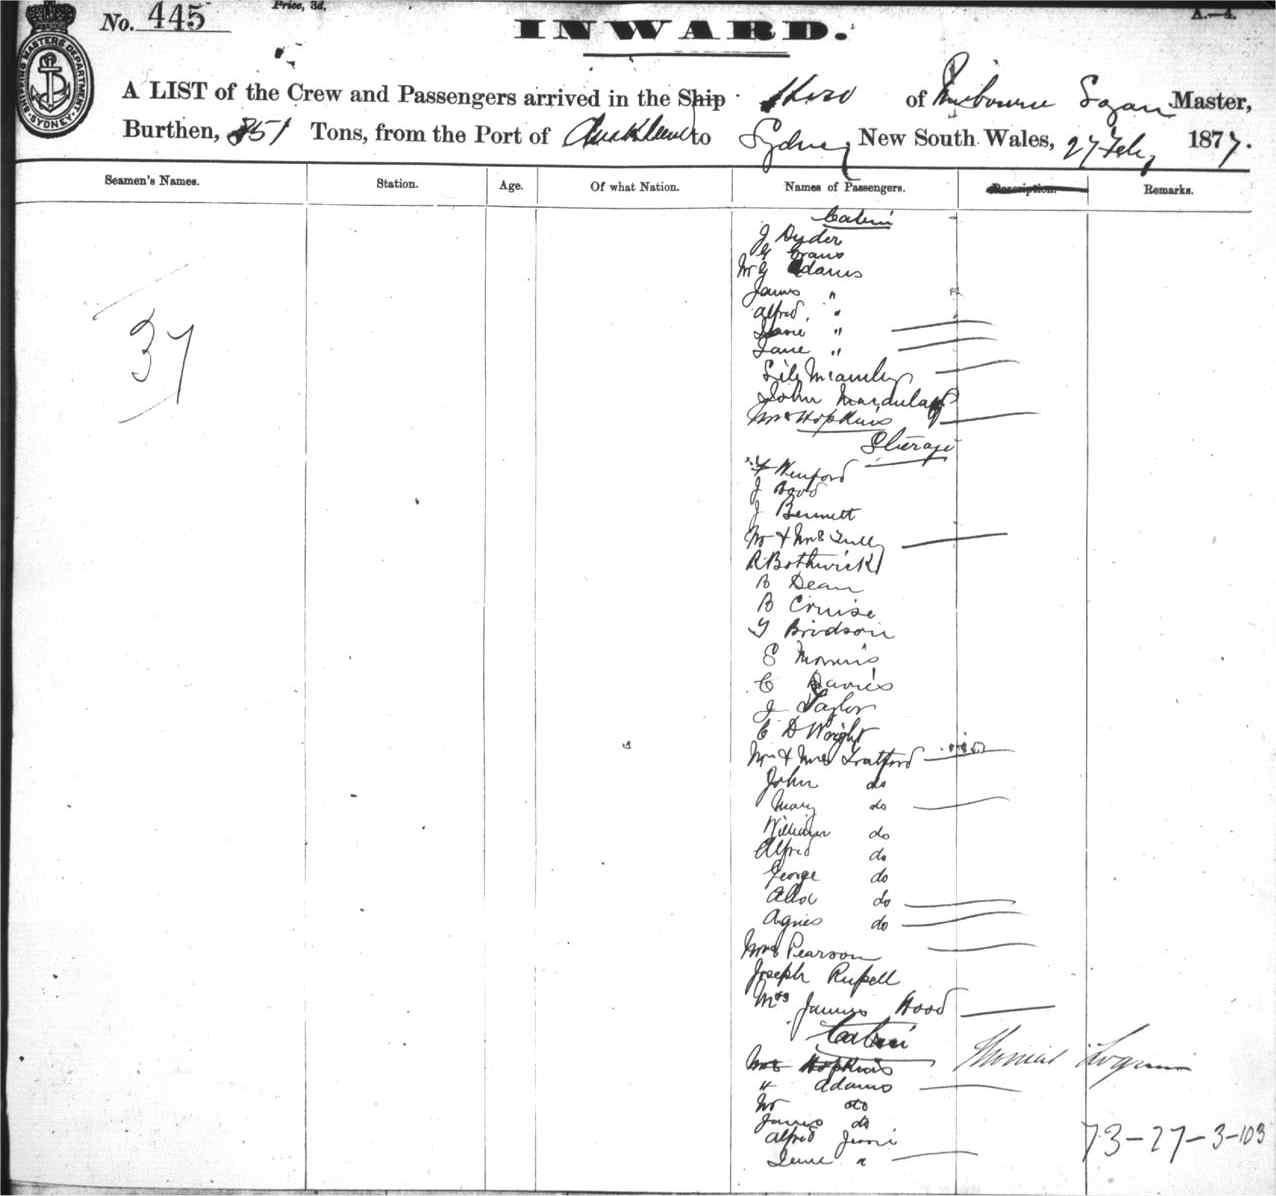 Price, 3d.
A.—4.
No. 445
INWARD.
SHIPPING MASTERS DEPARTMENT SYDNEY
A LIST of the Crew and Passengers arrived in the Ship Hero of Melbourne Logan Master,
Burthen, 851 Tons, from the Port of Auckland to Sydney New South Wales, 27 Feby 1877.
Seamen's Names. Station. Age. Of what Nation. Names of Passengers. Description. Remarks.
37
Cabin
J Dyder
G Evans
Mr G Adams
James "
Alfred "
Jane "
Jane "
John
Mrs Hopkins
Steerage
J
J Bennett
Mr & Mrs Tully
R Bothwick
B Dean
B Cruise
G Bridson
E Morris
C Davies
J Taylor
C D Wright
Mr & Mrs Tratford
John do
Mary do
William do
Alfred do
George do
do
Agnes do
Mrs Pearson
Joseph Russell
Mrs James Hood
Cabin
Mrs Hopkins
" Adams
Mr do
James do
Alfred
"
Thomas Logan
73-27-3-103